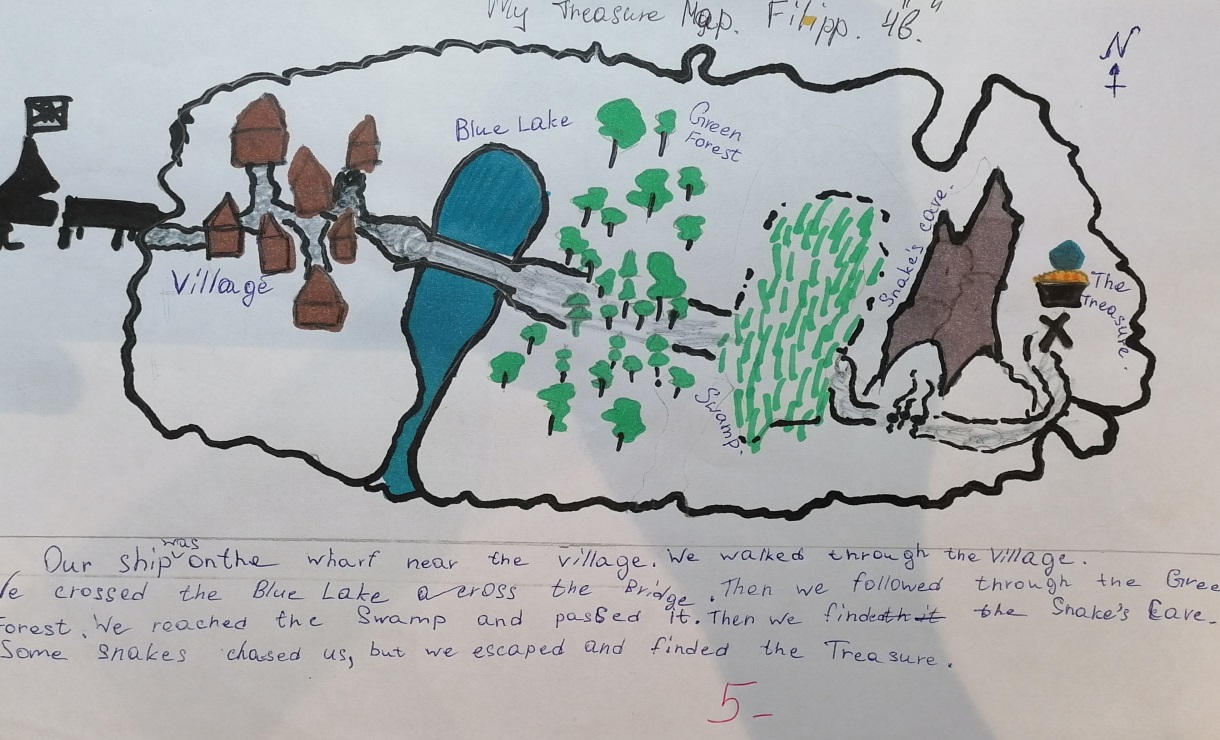 My Treasure Map. Filipp. 4"B."
N
Blue Lake
Green
Forest
Village
Snake's cave.
The
Treasure.
Swamp.
Our ship was on the wharf near the village. We walked through the village.
We crossed the Blue Lake across the Bridge. Then we followed through the Green
Forest. We reached the Swamp and passed it. Then we finded the Snake's Cave.
Some snakes chased us, but we escaped and finded the Treasure.
5-